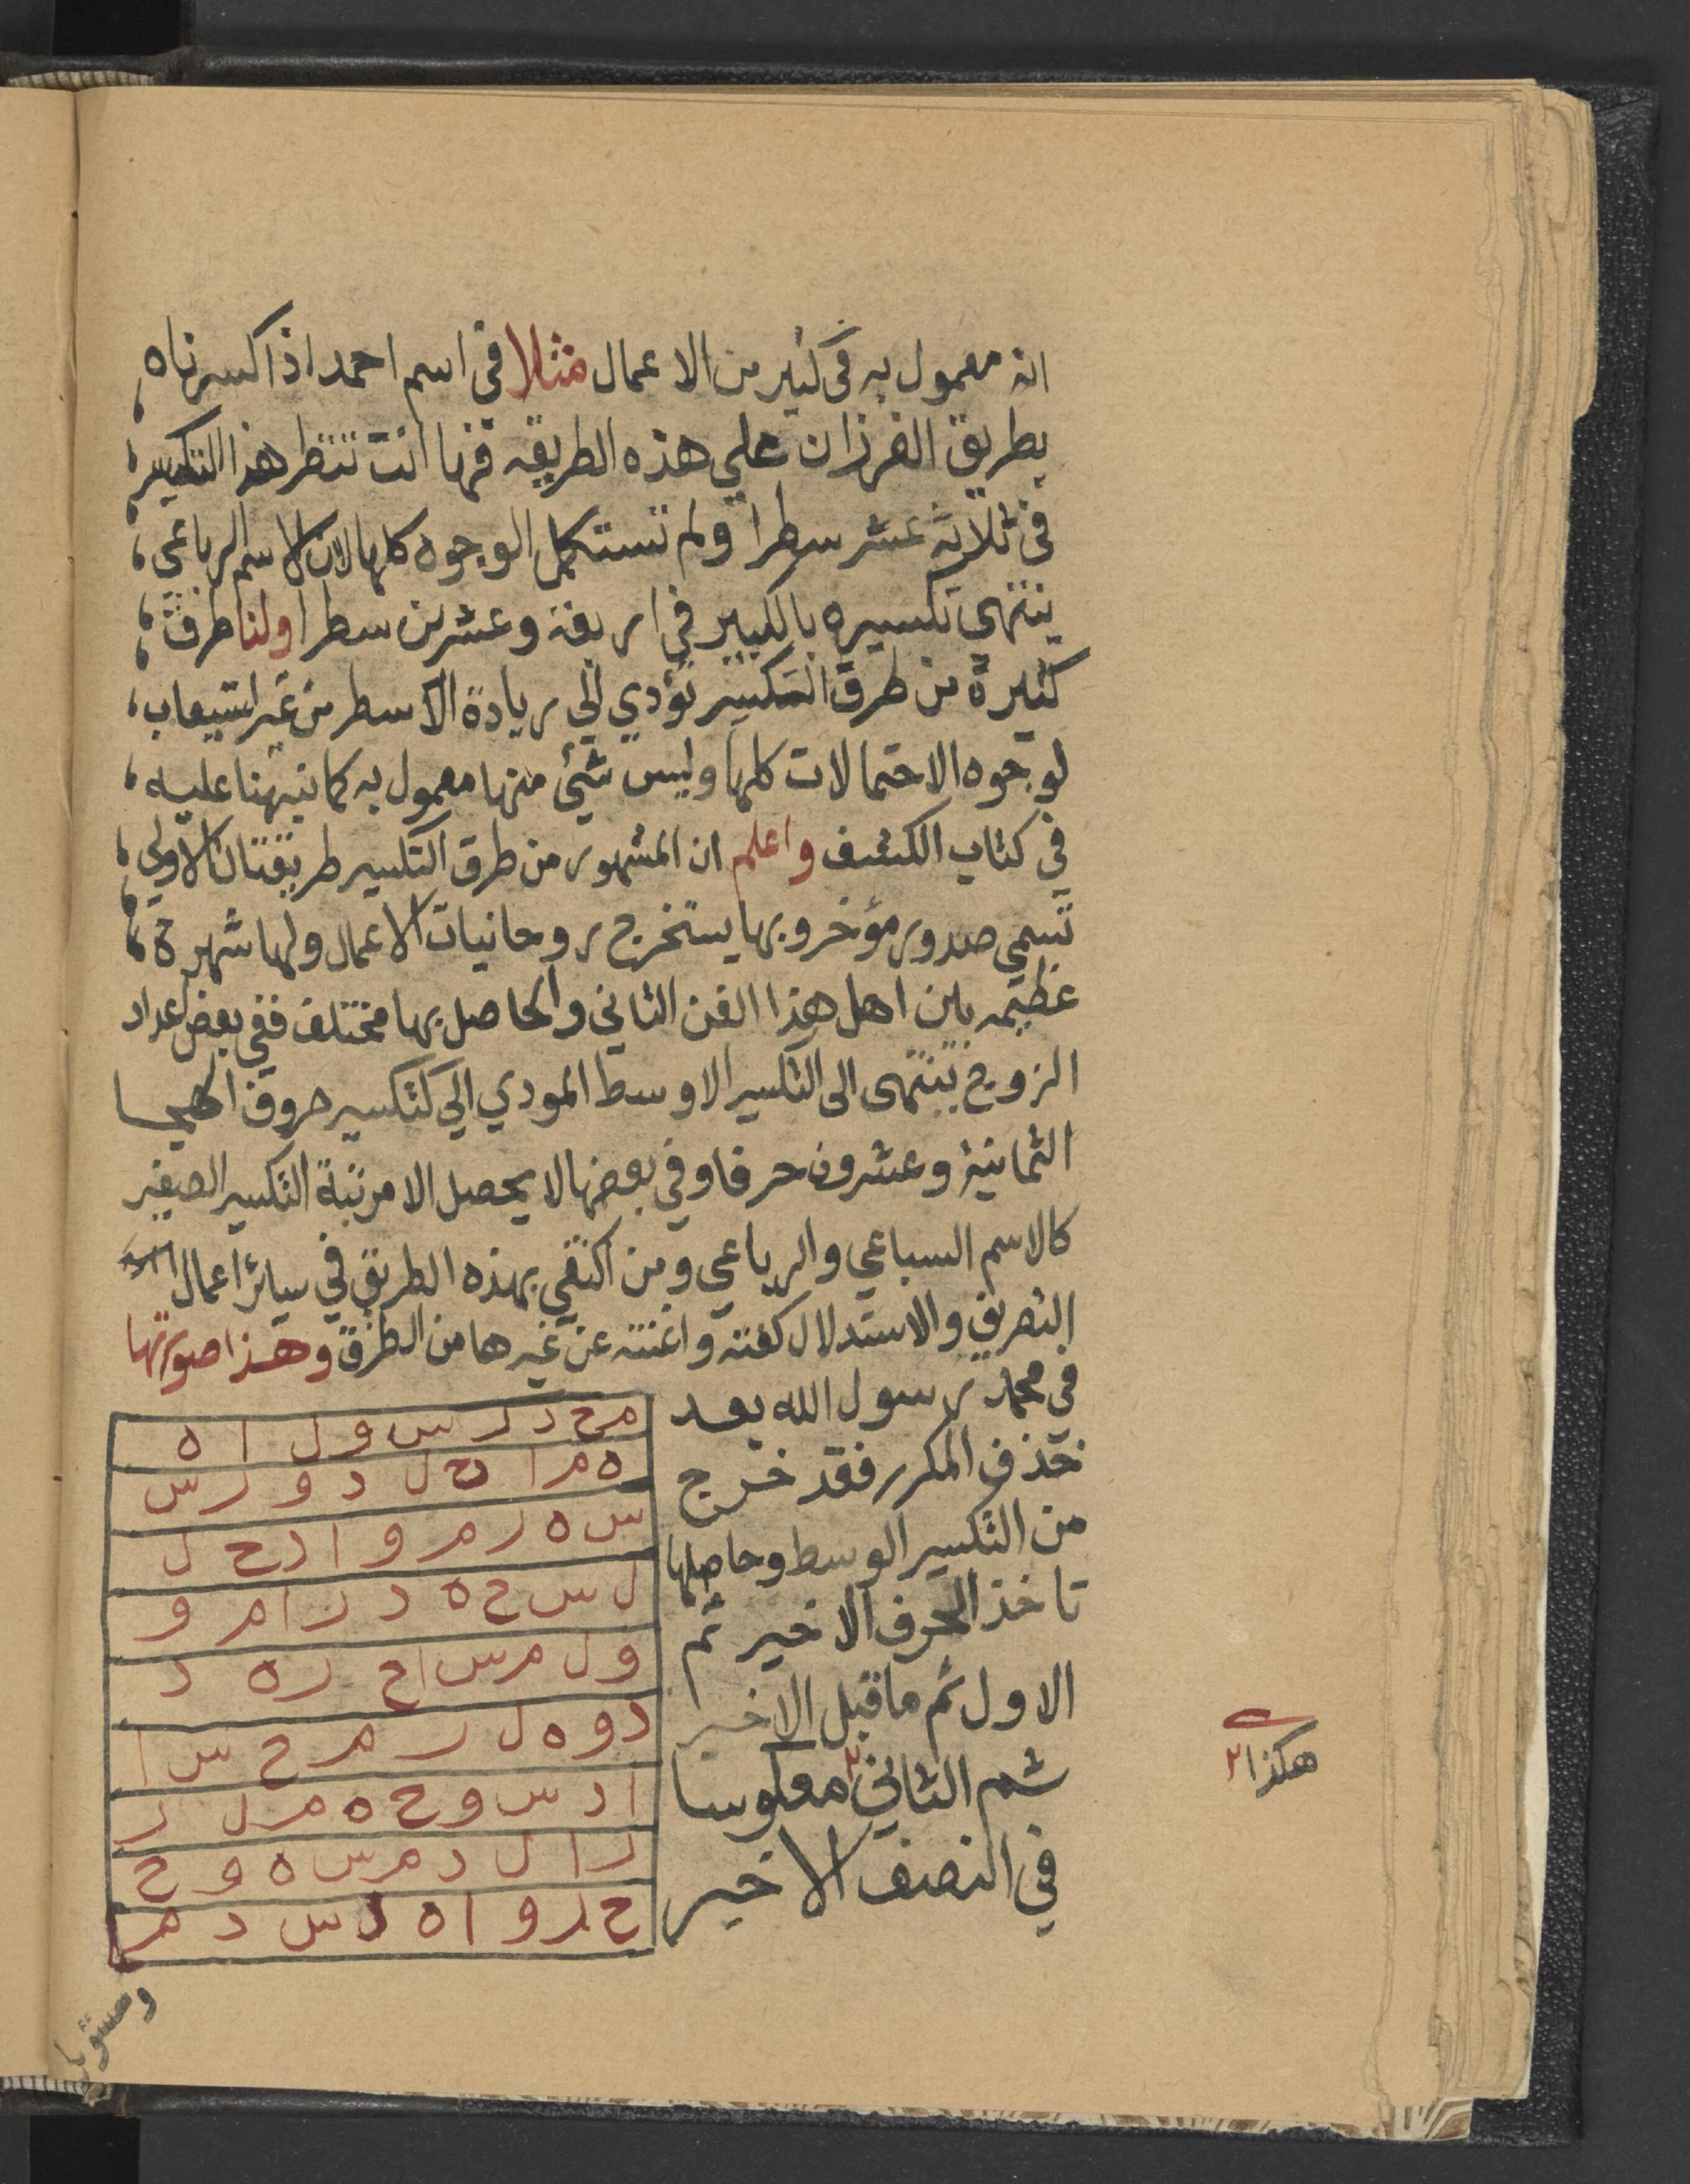 انه معمول به في كثير من الاعمال مثلا في اسم احمد اذا كسرناه
بطريق الفرزان علي هذه الطريقه فها انت تنتظر هذا التكسير
في ثلاثة عشر سطرا ولم تستكمل الوجوه كلها لان الاسم الرباعي
ينتهي تكسيره بالكبير في اربعة وعشرين سطرا ولنا طرق
كثيرة من طرق التكسير تؤدي الي زيادة الاسطر من غير استيعاب
لوجوه الاحتمالات كلها وليس شئ منها معمول به كما نبهنا عليه
في كتاب الكشف واعلم ان المشهور من طرق التكسير طريقتان الاولي
تسمي صدور مؤخر وبها يستخرج روحانيات الاعمال ولها شهرة
عظيمه بين اهل هذا الفن الثاني والحاصل بها مختلف ففي بعض اعداد
الزوج ينتهى الى التكسير الاوسط المودي الي كتكسير حروف الهجا
الثمانية وعشرون حرفا وفي بعضها لا يحصل الا مرتبة التكسير الصغير
كالاسم السباعي والرباعي ومن اكتفي بهذه الطريق في سائر اعمال
التصريف والاستدلال كفته واغنته عن غيرها من الطرق وهذا صورتها
في محمد رسول الله بعد
حذف المكرر فقد خرج
من التكسير الوسط وحاصلها
تاخذ الحرف الاخير ثم
الاول ثم ما قبل الاخير
ثم الثاني ٢ معكوسا
في النصف الاخير
هكذا ٢
م ح د ر س و ل ا ه
ه م ا ح ل د و ر س
س ه ر م و ا د ح ل
ل س ح ه د ر ا م و
و ل م س ا ح ر ه د
د و ه ل ر م ح س ا
ا د س و ح ه م ل ر
ر ا ل د م س ه و ح
ح ر و ا ه ل س د م